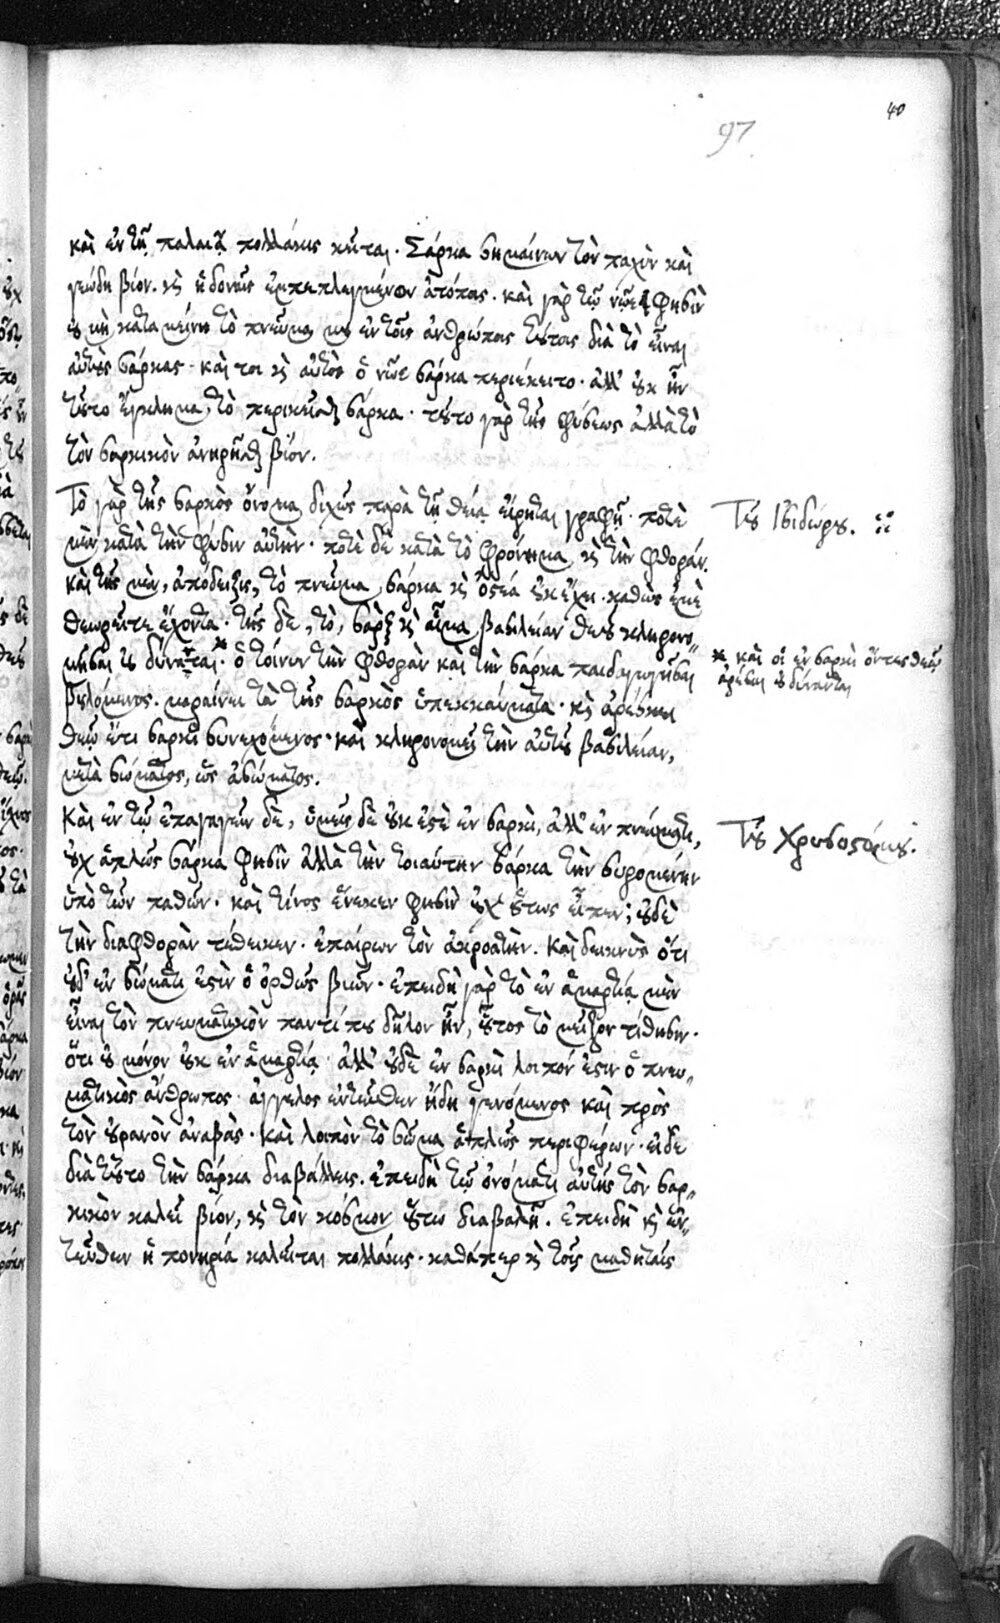 40
97
καὶ ἐν τῇ παλαιᾷ πολλάκις κεῖται. Σάρκα σημαίνων τὸν παχὺν καὶ
γεώδη βίον. καὶ ἡδοναῖς ἐμπεπλεγμένον ἀτόποις. καὶ γὰρ τῷ νῶε φησὶν
οὐ μὴ καταμείνῃ τὸ πνεῦμα μου ἐν τοῖς ἀνθρώποις τούτοις διὰ τὸ εἶναι
αὐτοὺς σάρκας. καί τοι καὶ αὐτὸς ὁ νῶε σάρκα περιέκειτο. ἀλλ' οὐκ ἦν
τοῦτο ἔγκλημα, τὸ περικεῖσθαι σάρκα. τοῦτο γὰρ τῆς φύσεως ἀλλὰ τὸ
τὸν σαρκικὸν ἀνῃρῆσθαι βίον.
Τὸ γὰρ τῆς σαρκὸς ὄνομα, διχῶς παρὰ τῇ θείᾳ εἴρηται γραφῇ. ποτὲ
μὲν κατὰ τὴν φύσιν αὐτήν. ποτὲ δὲ κατὰ τὸ φρόνημα, καὶ τὴν φθοράν.
καὶ τῆς μὲν, ἀπόδειξις, τὸ πνεῦμα, σάρκα καὶ ὀστέα οὐκ ἔχει. καθὼς ἐμὲ
θεωρεῖτε ἔχοντα. τῆς δὲ, τὸ, σὰρξ καὶ αἷμα, βασιλείαν θεοῦ κληρονο-
μῆσαι οὐ δύναται. ὁ τοίνυν τὴν φθορὰν καὶ τὴν σάρκα παιδαγωγῆσαι
βουλόμενος. μαραίνει τὰ τῆς σαρκὸς ὑπεκκαύματα. καὶ ἀρέσκει
θεῷ ἔτι σαρκὶ συνεχόμενος. καὶ κληρονομεῖ τὴν αὐτοῦ βασιλείαν,
μετὰ σώματος, ὡς ἀσώματος.
Καὶ ἐν τῷ ἐπαγαγεῖν δὲ, ὑμεῖς δὲ οὐκ ἐστὲ ἐν σαρκὶ, ἀλλ' ἐν πνεύματι,
οὐχ ἁπλῶς σάρκα φησὶν ἀλλὰ τὴν τοιαύτην σάρκα τὴν συρομένην
ὑπὸ τῶν παθῶν. καὶ τίνος ἕνεκεν φησὶν οὐχ οὕτως εἶπεν; οὐδὲ
τὴν διαφθορὰν τέθεικεν. ἐπαίρων τὸν ἀκροατὴν. καὶ δεικνὺς ὅτι
οὐδ' ἐν σώματι ἐστὶν ὁ ὀρθῶς βιῶν. ἐπειδὴ γὰρ τὸ ἐν ἁμαρτίᾳ μὲν
εἶναι τὸν πνευματικὸν παντί που δῆλον ἦν, οὗτος τὸ μεῖζον τίθησιν.
ὅτι οὐ μόνον οὐκ ἐν ἁμαρτίᾳ. ἀλλ' οὐδὲ ἐν σαρκὶ λοιπόν ἐστιν ὁ πνευ-
ματικὸς ἄνθρωπος. ἄγγελος ἐντεῦθεν ἤδη γενόμενος καὶ πρὸς
τὸν οὐρανὸν ἀναβὰς. καὶ λοιπὸν τὸ σῶμα ἁπλῶς περιφέρων. εἰ δὲ
διὰ τοῦτο τὴν σάρκα διαβάλλεις. ἐπειδὴ τῷ ὀνόματι αὐτῆς τὸν σαρ-
κικὸν καλεῖ βίον, καὶ τὸν κόσμον οὕτω διαβαλεῖ. ἐπειδὴ καὶ ἐν-
τεῦθεν ἡ πονηρία καλεῖται πολλάκις. καθάπερ καὶ τοῖς μαθηταῖς
Τοῦ Ἰσιδώρου.
καὶ οἱ ἐν σαρκὶ ὄντες θεῷ
ἀρέσαι οὐ δύνανται
Τοῦ Χρυσοστόμου.